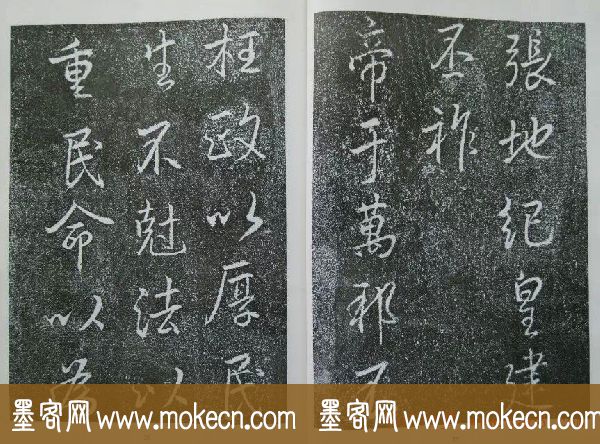 張地紀皇建
丕祚
帝于萬邦不
枉政以厚民
生不尅法以
重民命以為
墨客网 www.mokecn.com 墨客网 www.mokecn.com